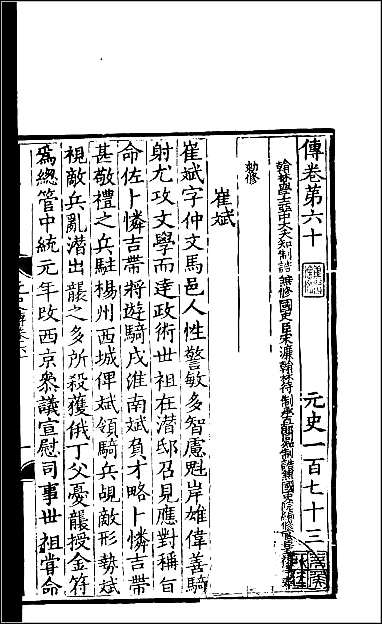 傳卷第六十　　元史一百七十三
翰林學士亞中大夫知制誥兼修國史臣宋濂翰林待制承直郎同知制誥兼國史院編修官臣王禕等奉
勅修
崔斌
崔斌字仲文馬邑人性警敏多智慮魁岸雄偉善騎
射尤攻文學而達政術世祖在潛邸召見應對稱旨
命佐卜憐吉帶將遊騎戍淮南斌負才略卜憐吉帶
甚敬禮之兵駐楊州西城俾斌領騎兵覘敵形勢斌
視敵兵亂潛出襲之多所殺獲俄丁父憂襲授金符
爲總管中統元年改西京參議宣慰司事世祖嘗命